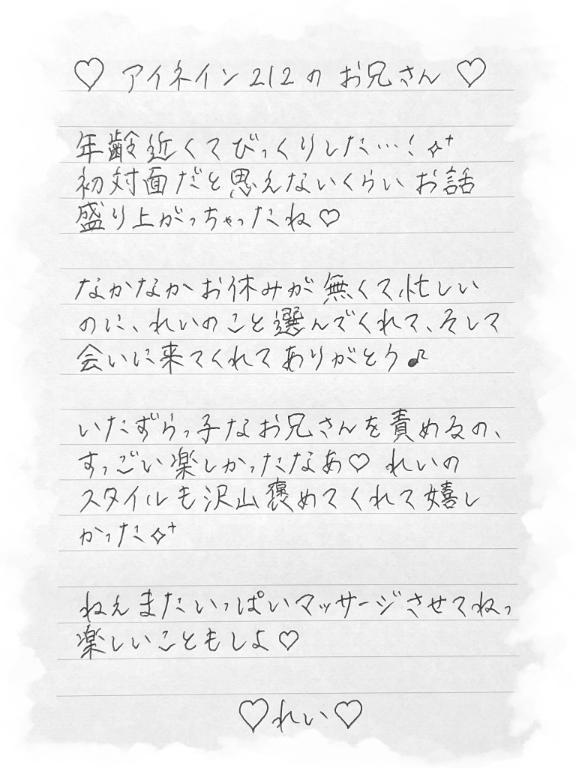 ♡ アイネイン212の お兄さん ♡
年齢近くてびっくりした…！✧⁺
初対面だと思えないくらいお話
盛り上がっちゃったね♡
なかなかお休みが無くて、忙しい
のに、れいのこと選んでくれて、そして
会いに来てくれてありがとう♪
いたずらっ子なお兄さんを責めるの、
すっごい楽しかったなあ♡ れいの
スタイルも沢山褒めてくれて嬉し
かった✧⁺
ねぇまたいっぱいマッサージさせてねっ
楽しいこともしよ♡
♡れい♡